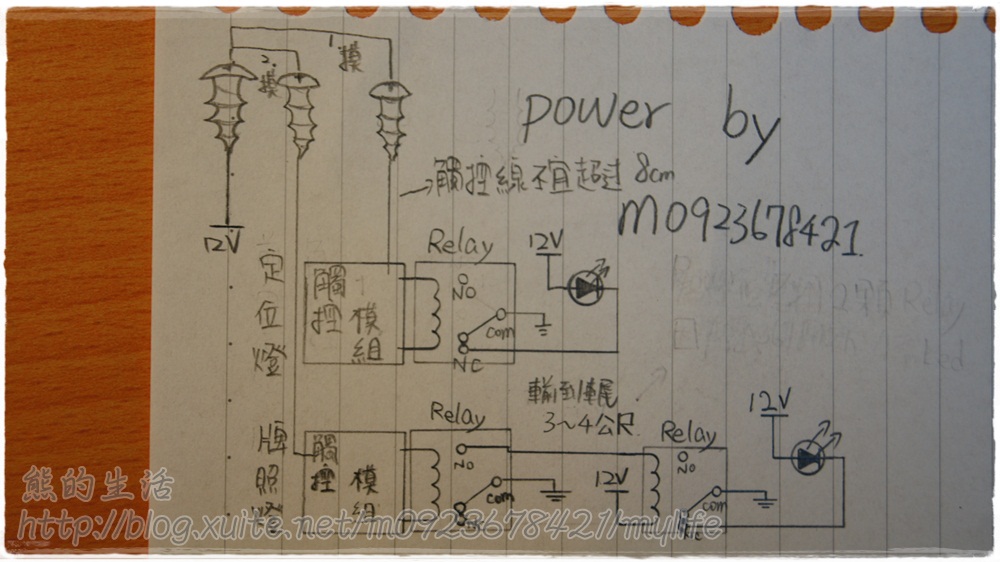 1.摸
2.摸
power by
m0923678421.
→觸控線不宜超过 8cm
12V
定位燈
觸控
模組
Relay
NO
com
NC
12V
輸到車尾
3~4公尺
牌照燈
觸控
模組
Relay
NO
com
12V
Relay
NO
com
NC
12V
熊的生活
http://blog.xuite.net/m0923678421/mylife